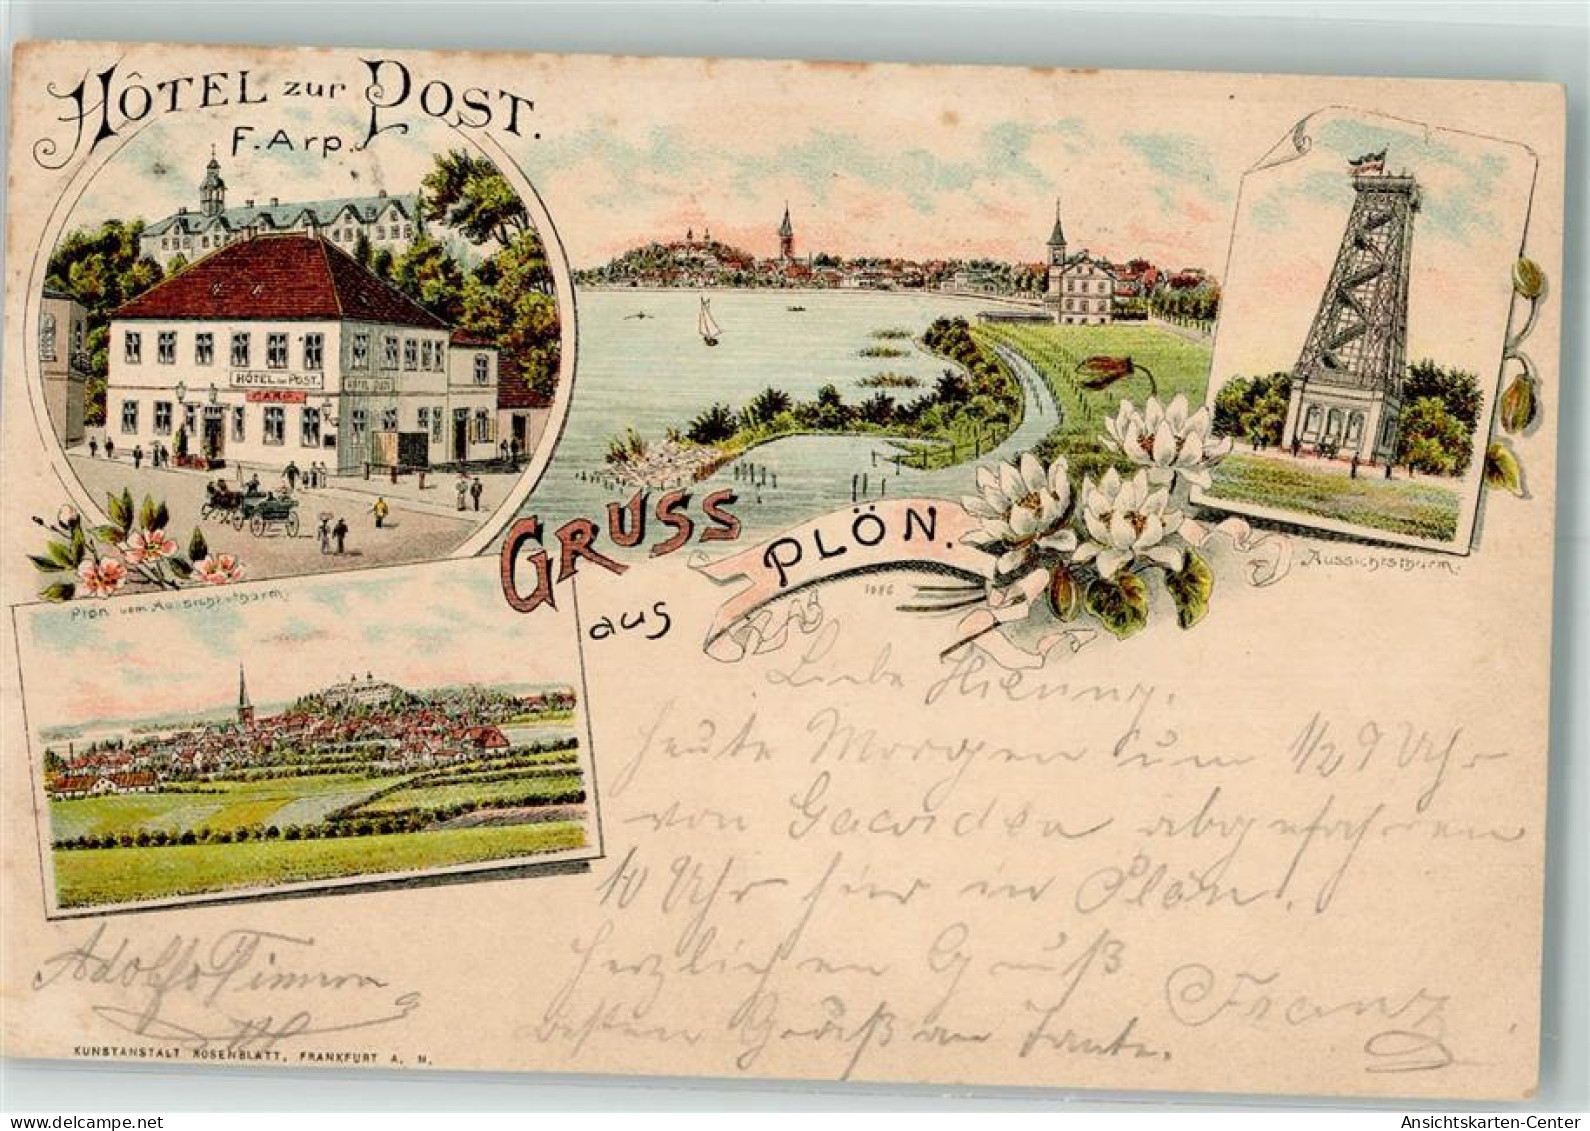 HÔTEL zur POST.
F. Arp.
HÔTEL zur POST.
F. ARP.
Plön vom Aussichtsthurm.
GRUSS
aus
PLÖN.
1086
Aussichtsthurm.
Liebe
heute Morgen um 1/2 9 Uhr
von abgefahren
10 Uhr hier in Plön.
Herzlichen Gruß
Franz
besten Gruß an Tante.
Adolf
KUNSTANSTALT ROSENBLATT, FRANKFURT A. M.
Ansichtskarten-Center